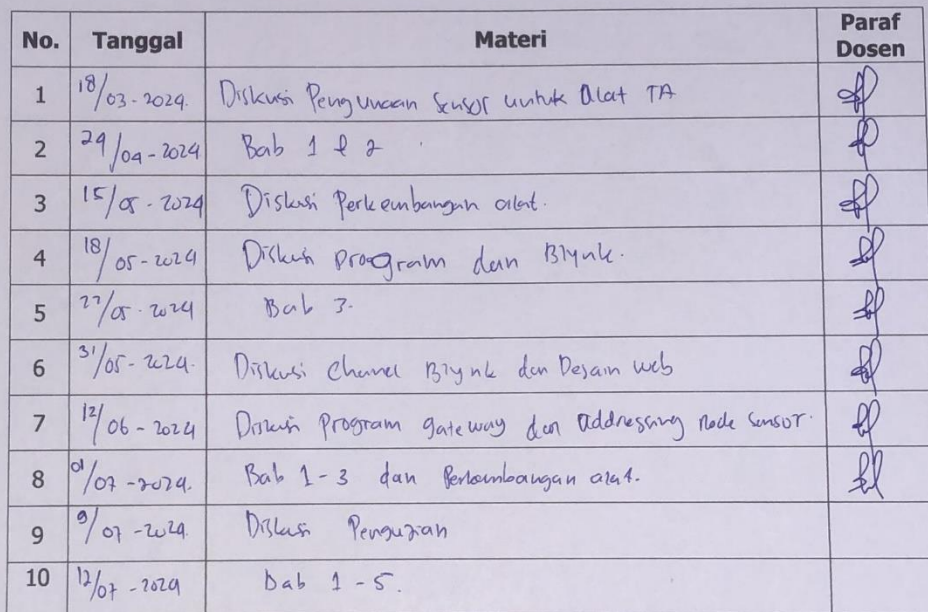 No. Tanggal Materi Paraf Dosen
1 18/03-2024. Diskusi Pengunaan Sensor untuk Alat TA
2 29/04-2024 Bab 1 & 2
3 15/05-2024 Diskusi Perkembangan alat.
4 18/05-2024 Diskusi program dan Blynk.
5 /05-2024 Bab 3.
6 31/05-2024. Diskusi Chanel Blynk dan Desain web
7 12/06-2024 Diskusi Program gateway dan addressing node sensor.
8 01/07-2024. Bab 1-3 dan Perkembangan alat.
9 9/07-2024. Diskusi Pengujian
10 12/07-2024 Bab 1-5.